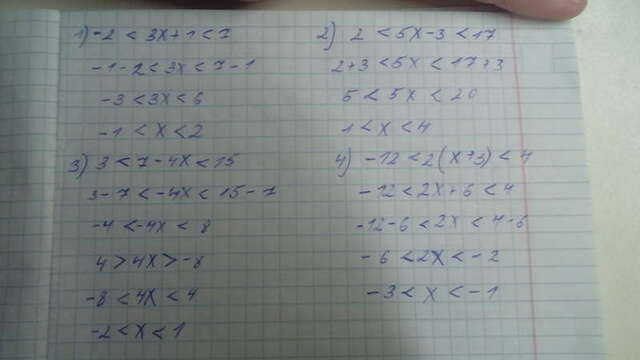 1) -2 < 3x+1 < 7
-1-2 < 3x < 7-1
-3 < 3x < 6
-1 < x < 2
2) 2 < 5x-3 < 17
2+3 < 5x < 17+3
5 < 5x < 20
1 < x < 4
3) 3 < 7-4x < 15
3-7 < -4x < 15-7
-4 < -4x < 8
4 > 4x > -8
-8 < 4x < 4
-2 < x < 1
4) -12 < 2(x+3) < 4
-12 < 2x+6 < 4
-12-6 < 2x < 4-6
-6 < 2x < -2
-3 < x < -1